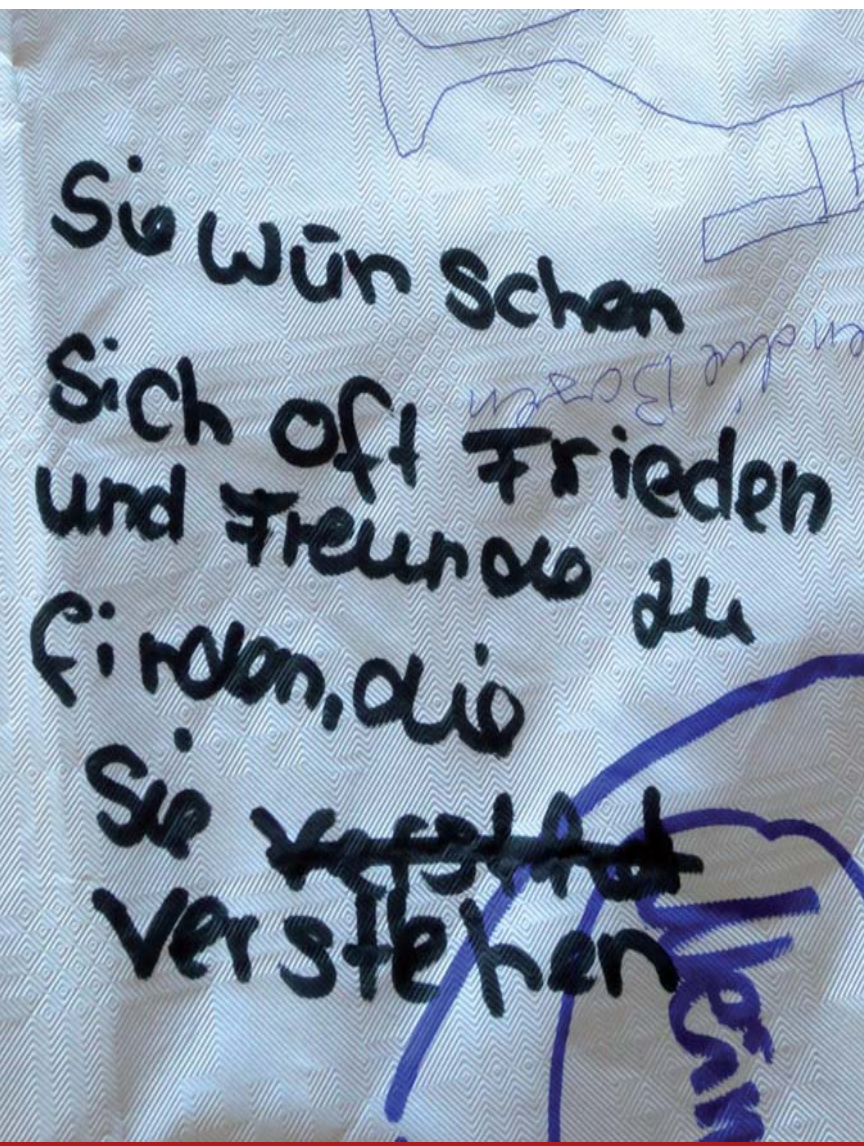 Sie wün schen
sich oft Frieden
und Freunde zu
finden, die
Sie
verstehen